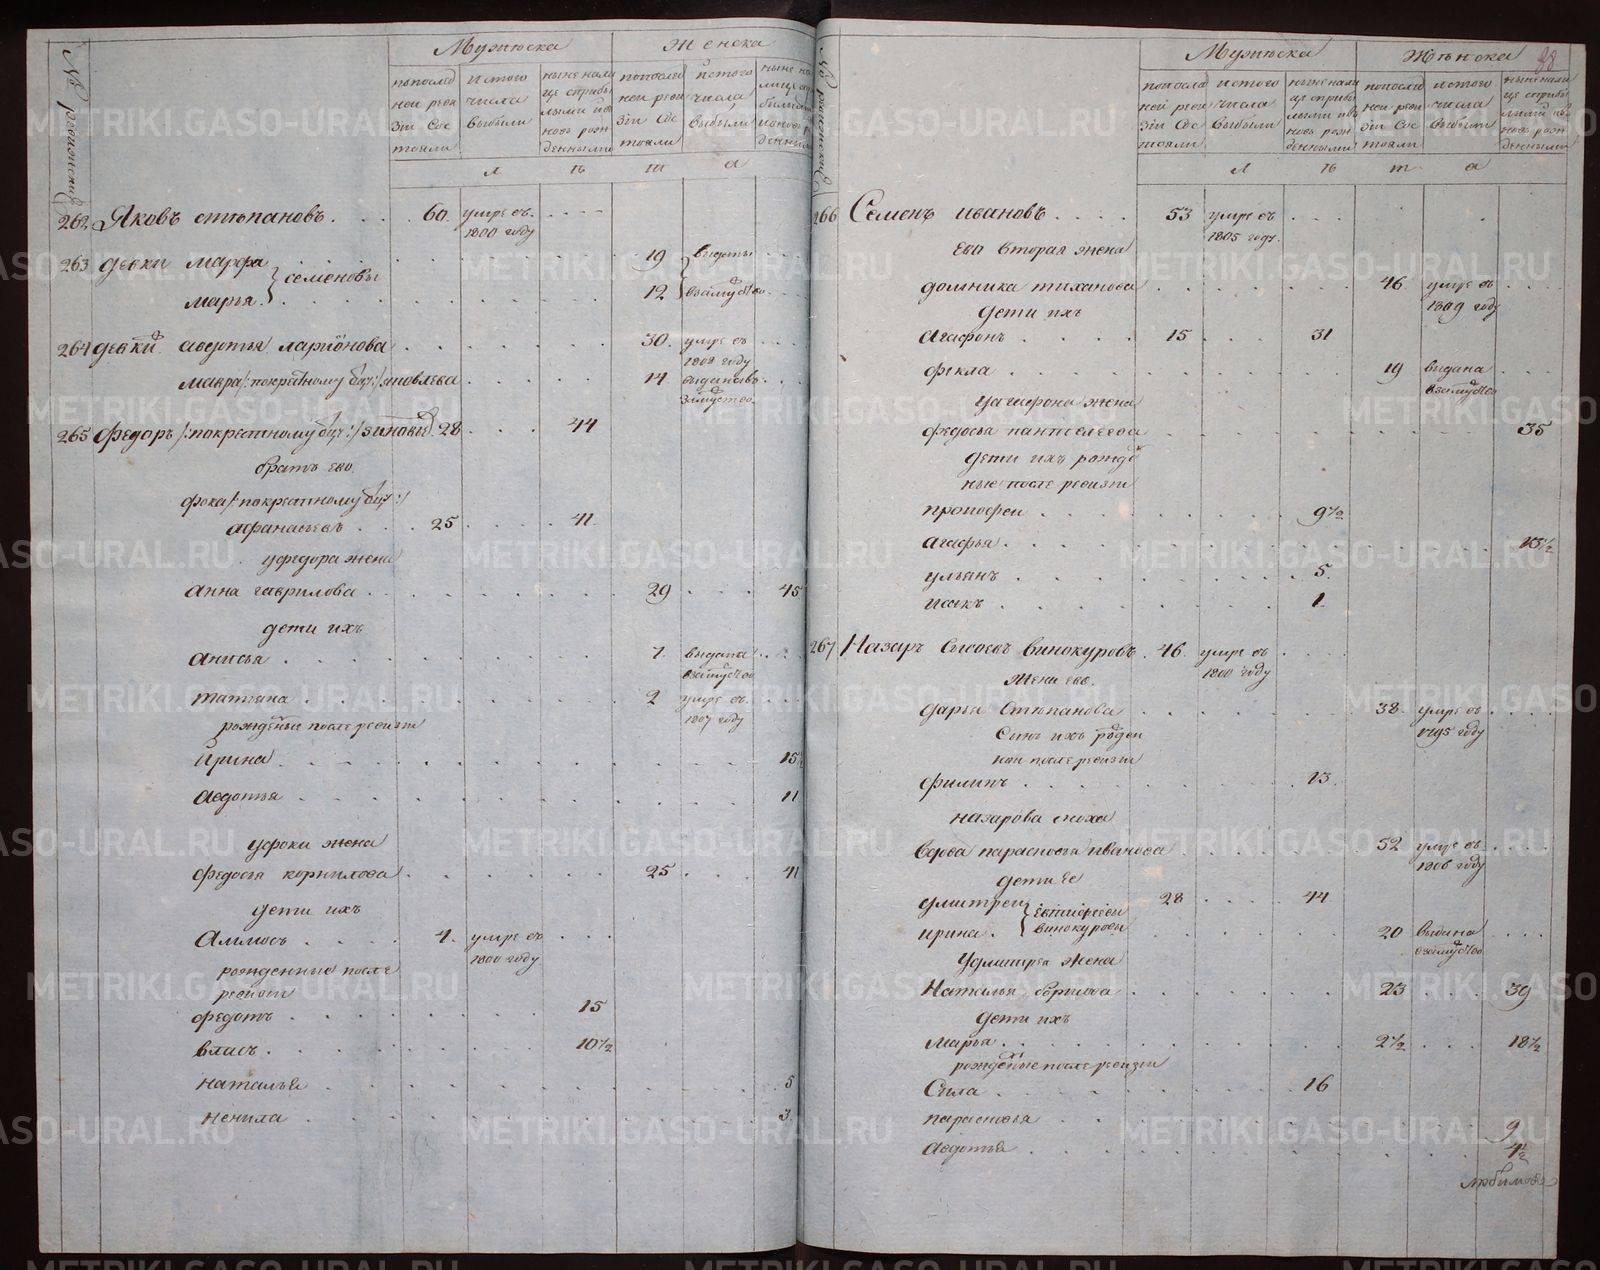 Мужеска Женска
№ ревижский
по последней ревизии состояли
из того числа выбыли
ныне на лице с прибылыми и вновь рожденными
по последней ревизии состояли
из того числа выбыли
ныне на лице с прибылыми и вновь рожденными
л ѣ т а
262 Яковъ степановъ 60 умре въ 1800 году
263 девки марфа 19 выданы
семеновы
марья 12 взамуство
264 девки авдотья ларионова 30 умре въ 1808 году
мавра /: покрестному отцу :/ яковлева 14 выдана взамуство
265 Федоръ /: покрестному отцу :/ зиновьевъ 28 44
братъ ево
фока /: покрестному отцу :/
афанасьевъ 25 41
у федора жена
анна гаврилова 29 45
дети ихъ
анисья 7 выдана взамуство
татьяна 2 умре въ 1807 году
рожденные после ревизи
Ирина 15½
авдотья 11
у фоки жена
федосья корнилова 25 41
дети ихъ
Аммосъ 4 умре въ 1800 году
рожденные после
ревизи
федотъ 15
власъ 10½
наталья 5
ненила 3
38
Мужеска Женска
№ ревижский
по последней ревизии состояли
из того числа выбыли
ныне на лице с прибылыми и вновь рожденными
по последней ревизии состояли
из того числа выбыли
ныне на лице с прибылыми и вновь рожденными
л ѣ т а
266 Семенъ ивановъ 53 умре въ 1805 году
ево вторая жена
домника тиханова 46 умре въ 1809 году
дети ихъ
агафонъ 15 31
фекла 19 выдана взамуство
у агафона жена
федосья пантелеева 35
дети ихъ рожде
ные после ревизи
прокофеи 9½
агафья 13½
ульянъ 5
исакъ 1
267 Назаръ сысоевъ винокуровъ 46 умре въ 1800 году
жена ево
дарья степанова 38 умре въ 1795 году
Сынъ ихъ рожден
нои после ревизи
филипъ 13
назарова сноха
вдова парасковья иванова 52 умре въ 1806 году
дети ее
дмитреи 28 44
евтифеевы
винокуровы
ирина 20 выдана взамуство
у дмитрея жена
Наталья борисова 23 39
дети ихъ
марья 2½ 18½
рожденые после ревизи
Сила 16
парасковья 9
авдотья 4½
любимова
METRIKI.GASO-URAL.RU